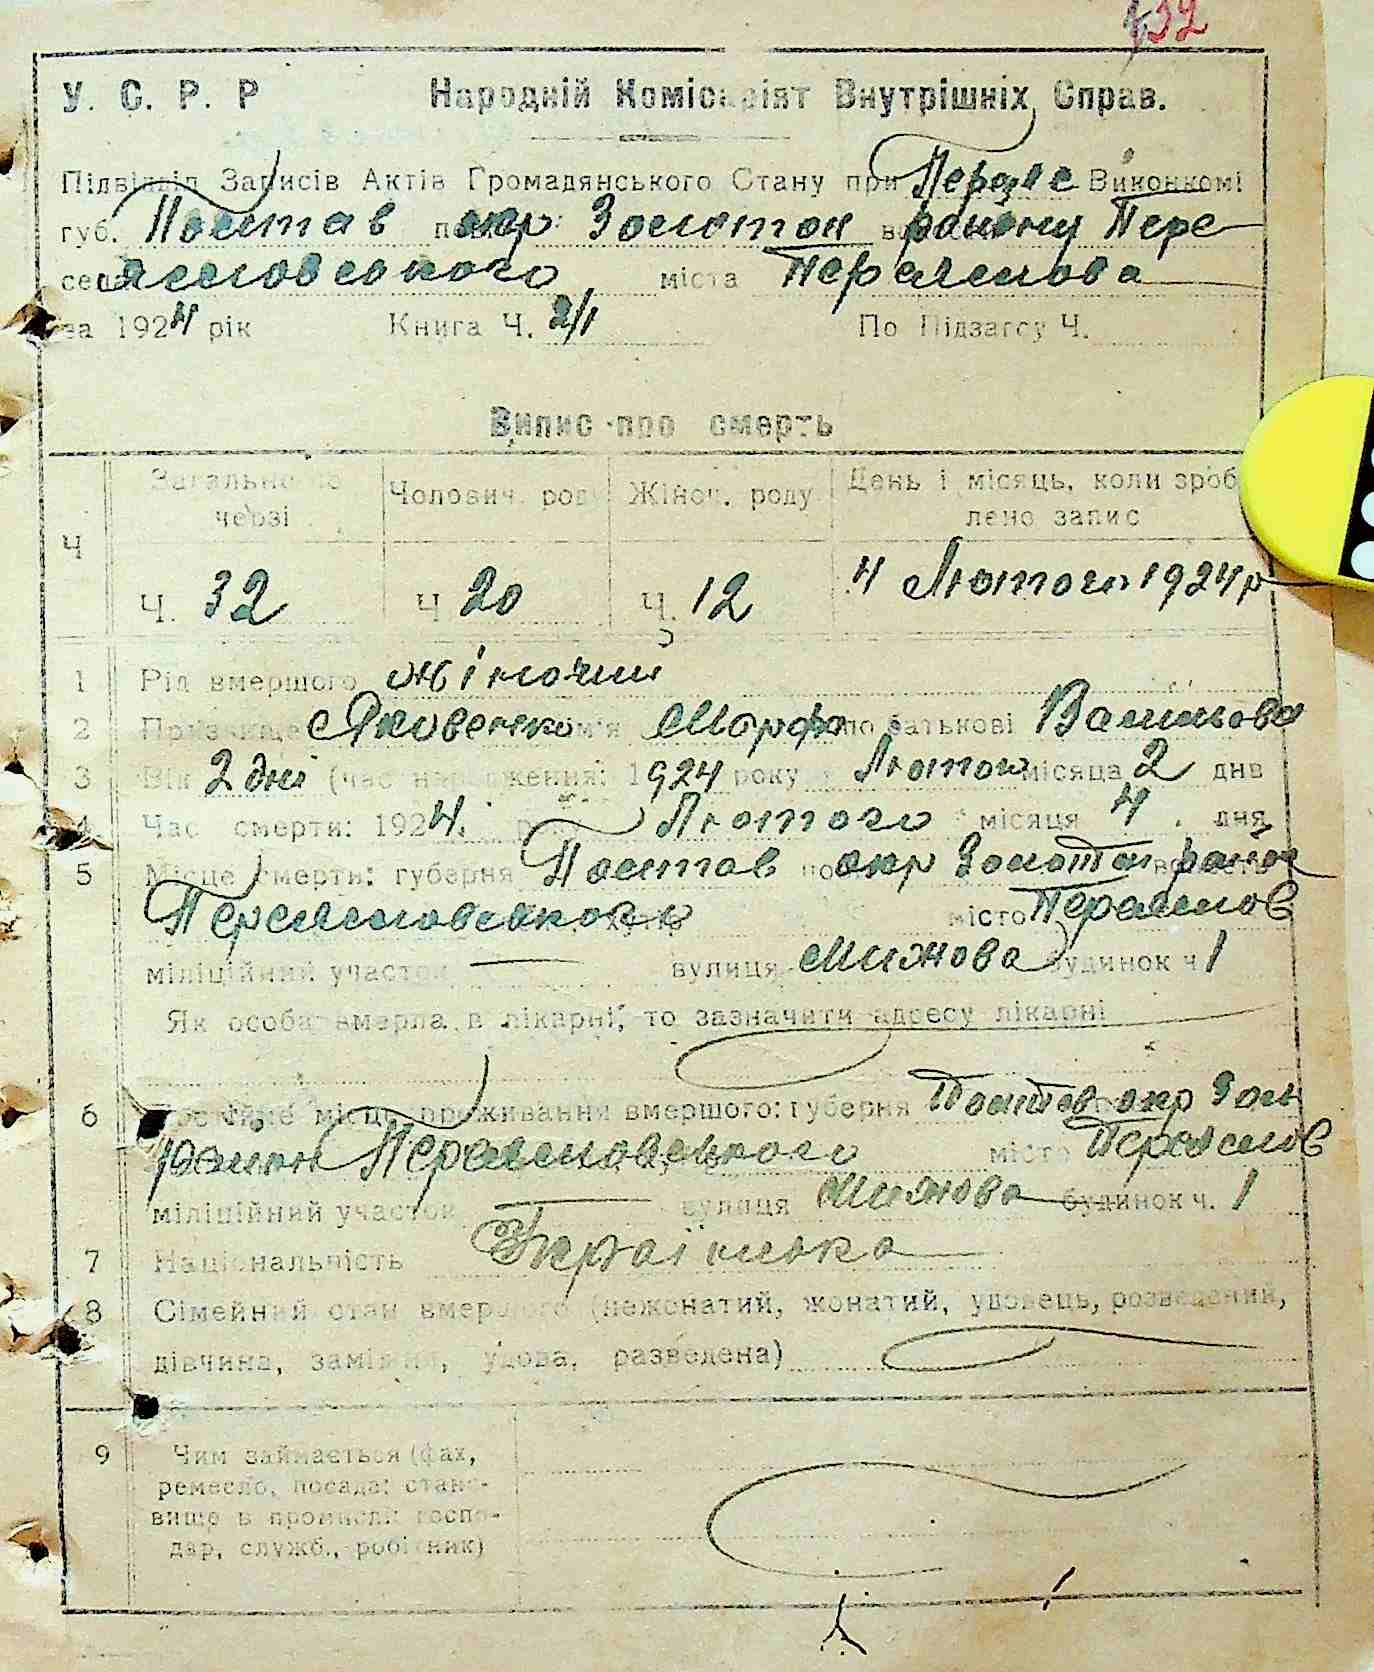 132
У. С. Р. Р Народній Комісаріят Внутрішніх Справ.
Підвідділ Записів Актів Громадянського Стану при Переяс Виконкомі
губ. Полтав пов. окр Золотон району Пере
села яславського міста Переяслова
за 1924 рік Книга Ч. 2/1 По Підзагсу Ч.
Випис про смерть
Ч Загально по черзі Чолович. роду Жіноч. роду День і місяць, коли зроб-
лено запис
Ч. 32 Ч 20 Ч. 12 4 Лютого 1924 р
1 Рід вмершого жіночий
2 Призвище Яковенко ім'я Марфа по батькові Васильова
3 Вік 2 дні (час народження: 1924 року Лютого місяца 2 днв
4 Час смерти: 1924. року Лютого місяця 4 дня
5 Місце смерти: губерня Полтав пов. окр Золотон район волость
Переяславського хутір місто Переяслов
міліційний участок — вулиця Мижова будинок ч 1
Як особа вмерла в лікарні, то зазначити адресу лікарні
6 Постійне місце проживання вмершого: губерня Полтав окр Золь
район Переясловського місто Переяслов
міліційний участок — вулиця Мижова будинок ч. 1
7 Національність Українка
8 Сімейний стан вмершого (нежонатий, жонатий, удовець, розведений,
дівчина, заміжня, удова, разведена)
9 Чим займається (фах,
ремесло, посада; стано-
вище в промислі: госпо-
дар, служб., робітник)